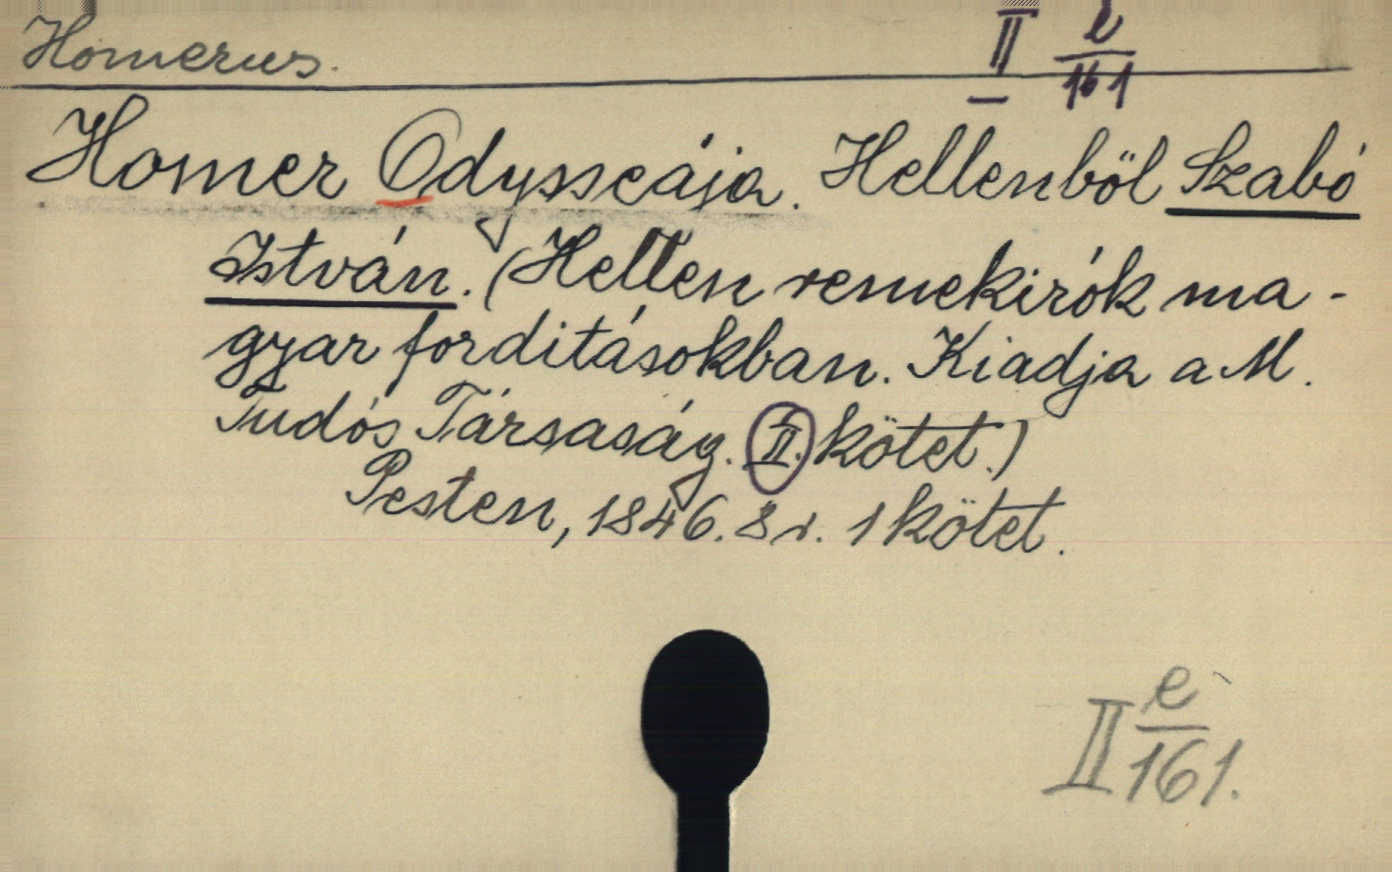 Homerus.
II e/161
Homer Odysseája. Hellenből Szabó
István. (Hellen remekirók ma-
gyar forditásokban. Kiadja a M.
Tudós Társaság. II. kötet.)
Pesten, 1846. 8r. 1 kötet.
II e/161.